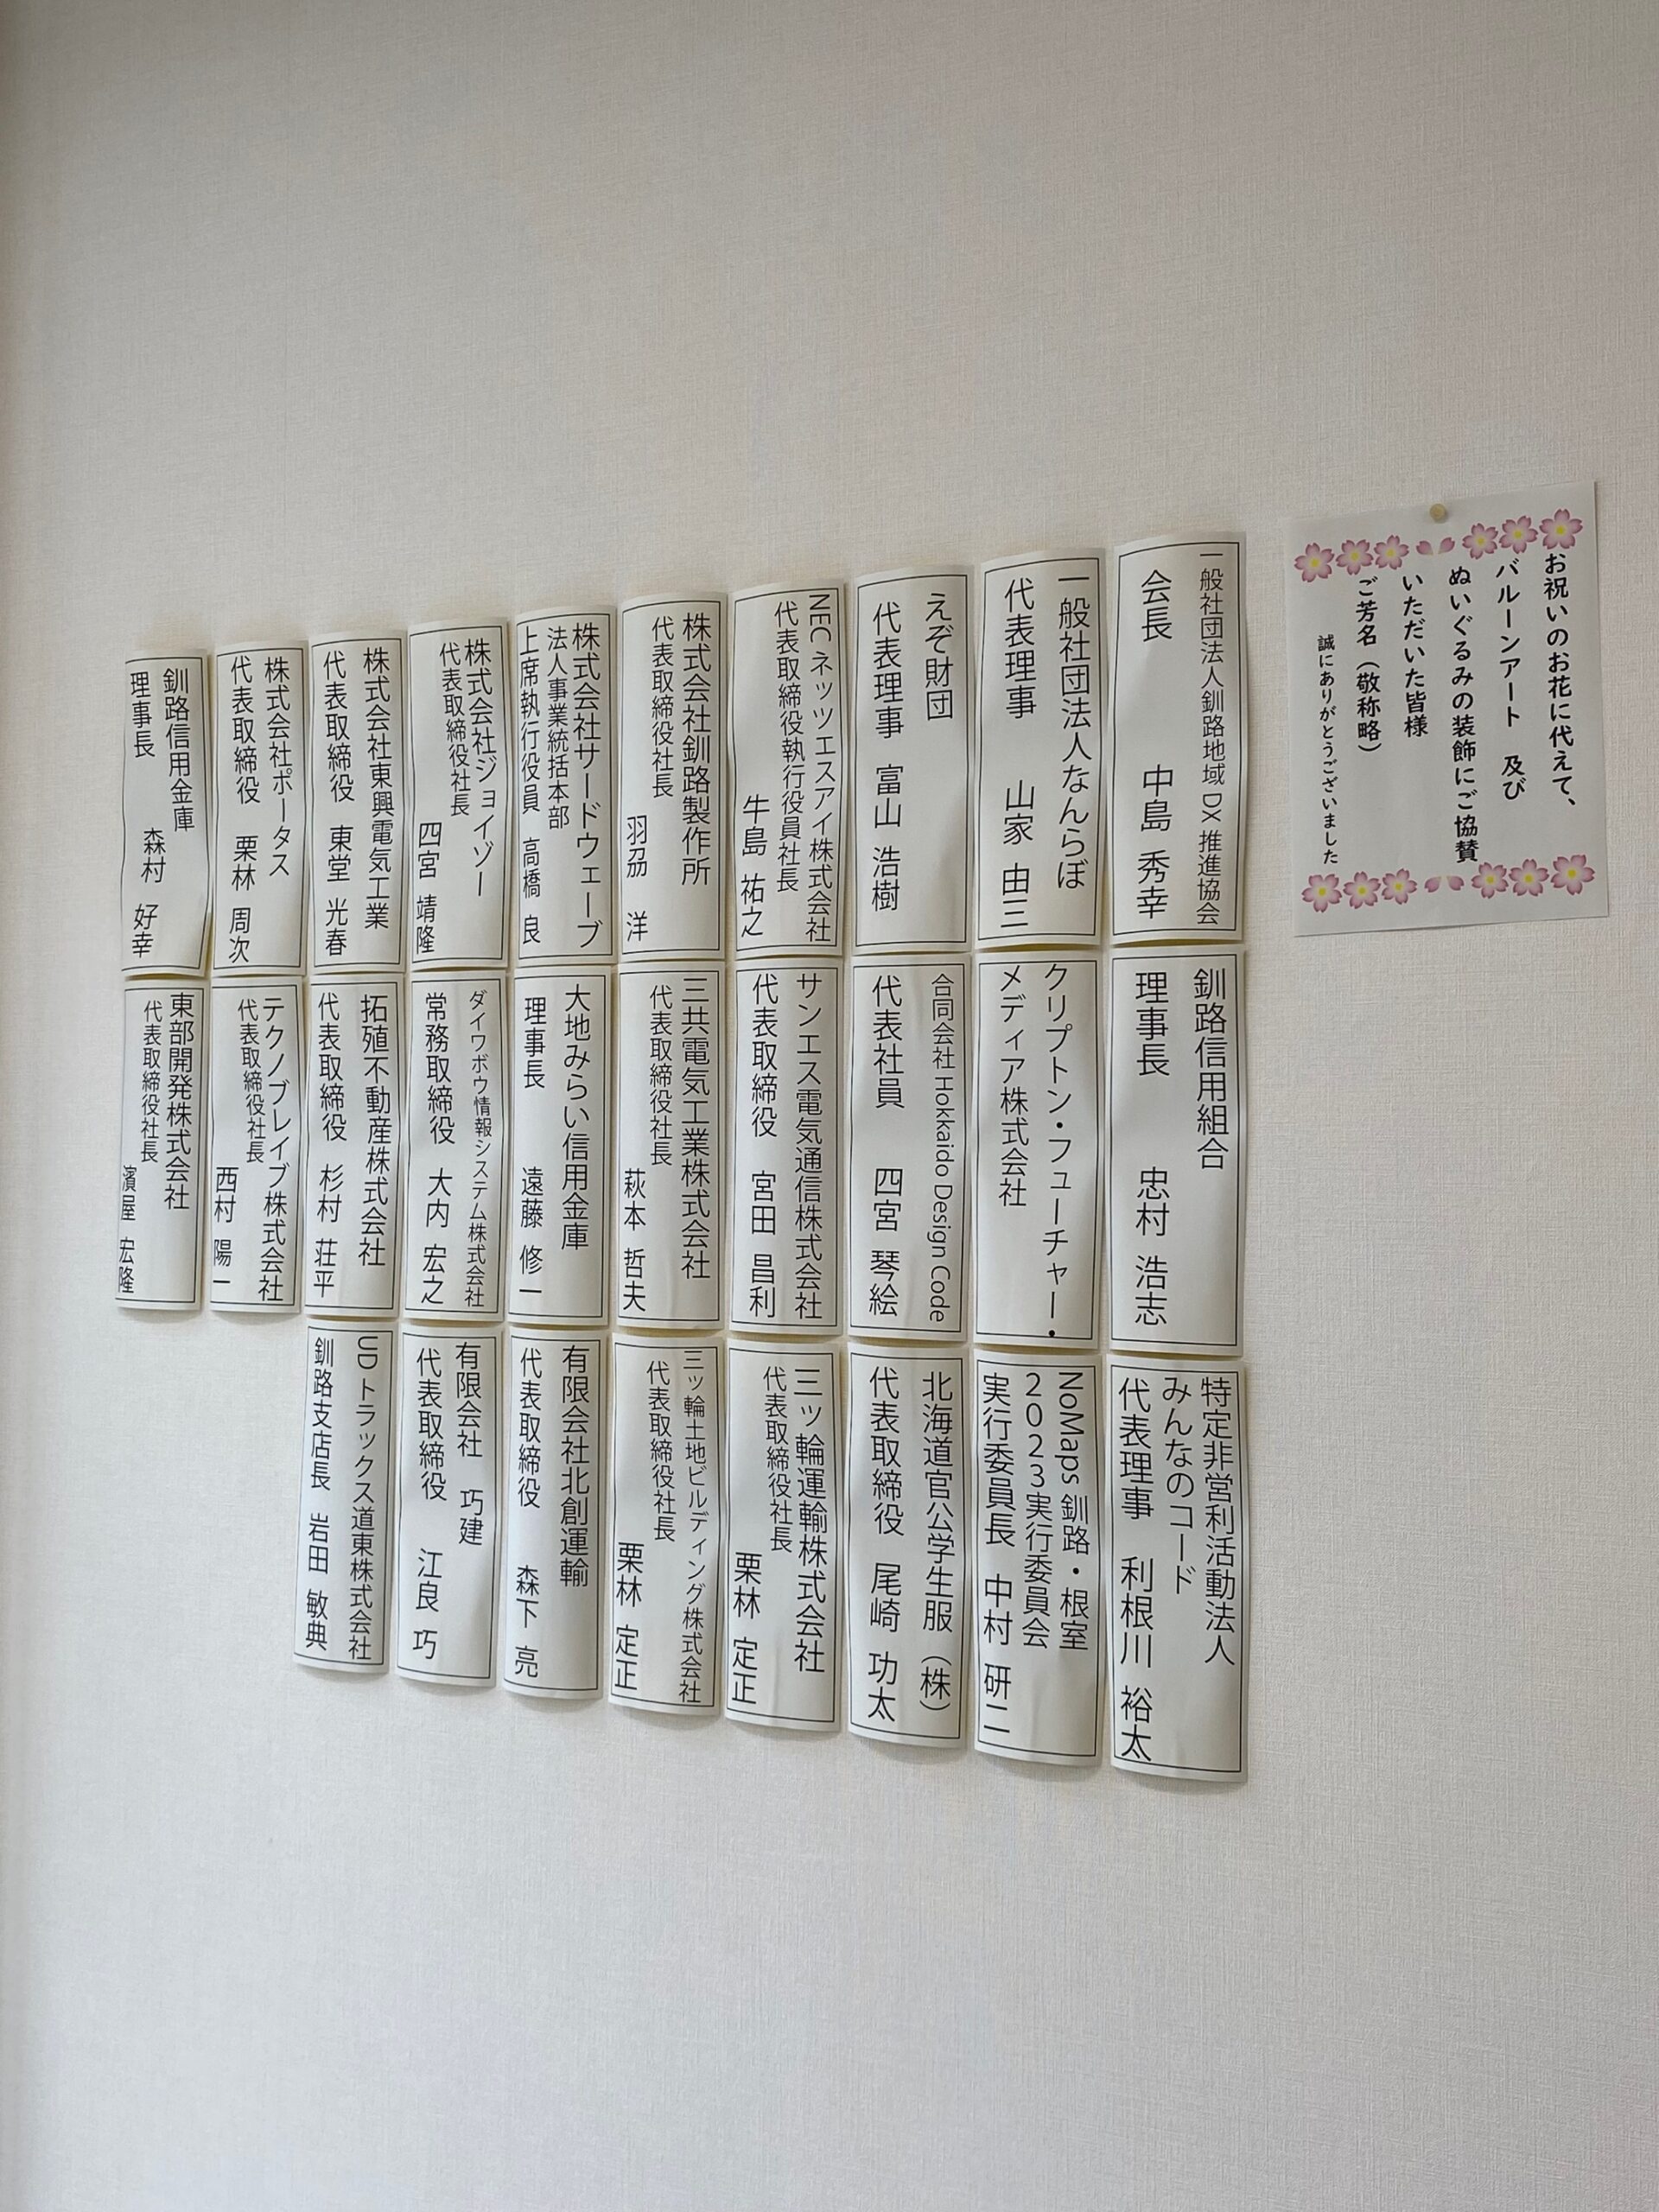 お祝いのお花に代えて、
バルーンアート 及び
ぬいぐるみの装飾にご協賛
いただいた皆様
ご芳名（敬称略）
誠にありがとうございました
一般社団法人釧路地域 DX 推進協会
会長 中島 秀幸
一般社団法人なんらぼ
代表理事 山家 由三
えぞ財団
代表理事 富山 浩樹
NEC ネッツエスアイ株式会社
代表取締役執行役員社長
牛島 祐之
株式会社釧路製作所
代表取締役社長
羽刕 洋
株式会社サードウェーブ
法人事業統括本部
上席執行役員 高橋 良
株式会社ジョイゾー
代表取締役社長
四宮 靖隆
株式会社東興電気工業
代表取締役 東堂 光春
株式会社ポータス
代表取締役 栗林 周次
釧路信用金庫
理事長 森村 好幸
釧路信用組合
理事長 忠村 浩志
クリプトン・フューチャー・
メディア株式会社
合同会社 Hokkaido Design Code
代表社員 四宮 琴絵
サンエス電気通信株式会社
代表取締役 宮田 昌利
三共電気工業株式会社
代表取締役社長
萩本 哲夫
大地みらい信用金庫
理事長 遠藤 修一
ダイワボウ情報システム株式会社
常務取締役 大内 宏之
拓殖不動産株式会社
代表取締役 杉村 荘平
テクノブレイブ株式会社
代表取締役社長
西村 陽一
東部開発株式会社
代表取締役社長
濱屋 宏隆
特定非営利活動法人
みんなのコード
代表理事 利根川 裕太
NoMaps 釧路・根室
2023実行委員会
実行委員長 中村 研二
北海道官公学生服（株）
代表取締役 尾崎 功太
三ッ輪運輸株式会社
代表取締役社長
栗林 定正
三ッ輪土地ビルディング株式会社
代表取締役社長
栗林 定正
有限会社北創運輸
代表取締役 森下 亮
有限会社 巧建
代表取締役 江良 巧
UDトラックス道東株式会社
釧路支店長 岩田 敏典